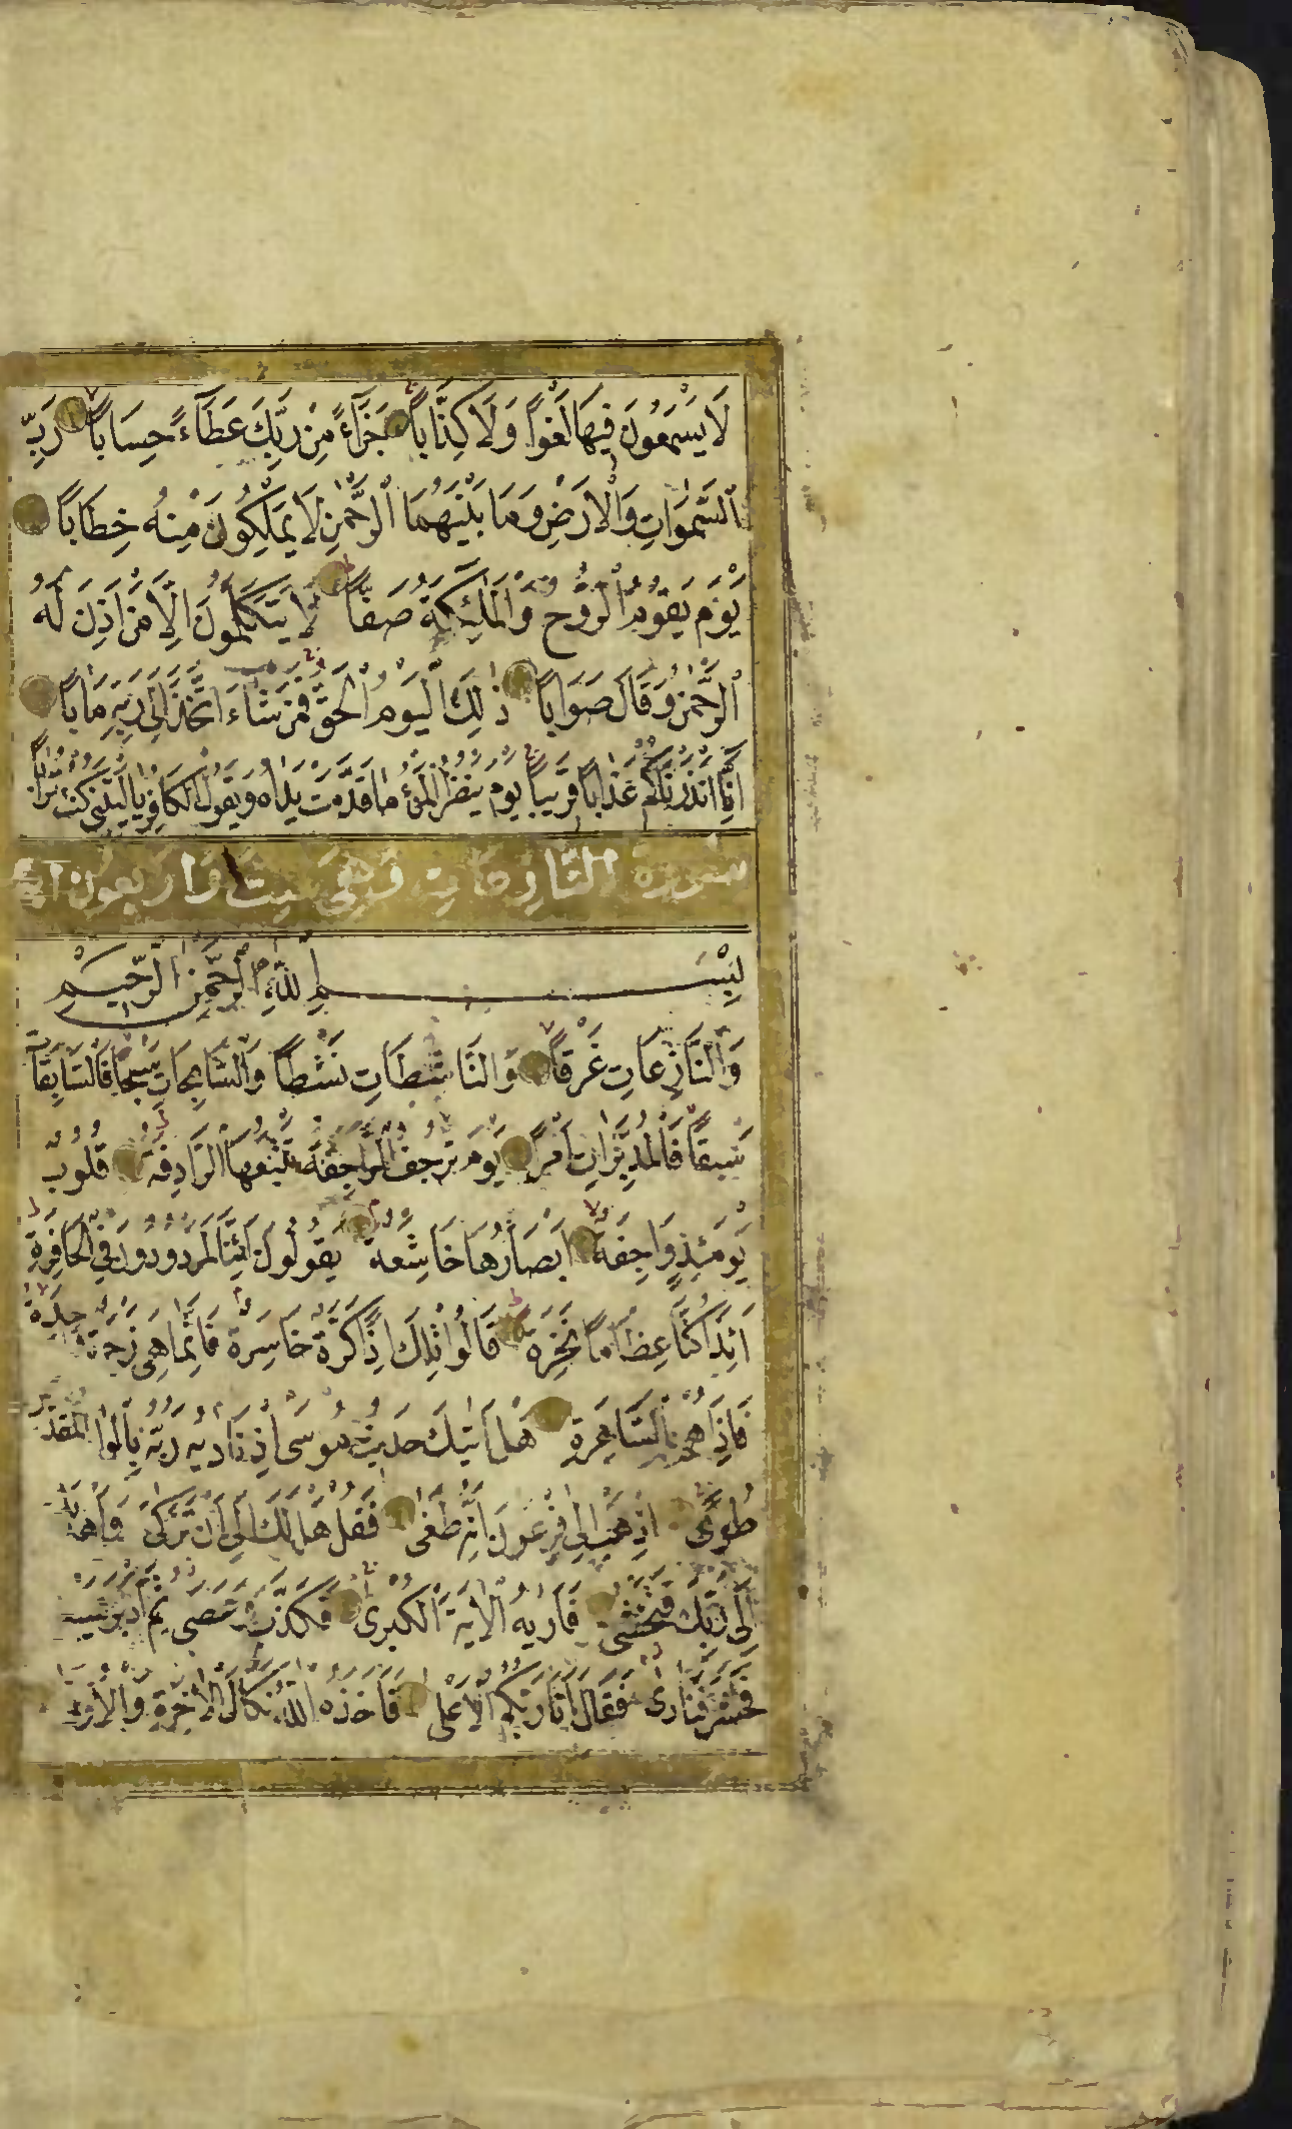 لَا يَسْمَعُونَ فِيهَا لَغْوًا وَلَا كِذَّابًا جَزَآءً مِنْ رَبِّكَ عَطَآءً حِسَابًا رَبِّ
ٱلسَّمٰوَاتِ وَٱلْاَرْضِ وَمَا بَيْنَهُمَا ٱلرَّحْمٰنِ لَا يَمْلِكُونَ مِنْهُ خِطَابًا
يَوْمَ يَقُومُ ٱلرُّوحُ وَٱلْمَلٰٓئِكَةُ صَفًّا لَا يَتَكَلَّمُونَ اِلَّا مَنْ اَذِنَ لَهُ
ٱلرَّحْمٰنُ وَقَالَ صَوَابًا ذٰلِكَ ٱلْيَوْمُ ٱلْحَقُّ فَمَنْ شَآءَ اتَّخَذَ اِلٰى رَبِّهِ مَاٰبًا
اِنَّا اَنْذَرْنَاكُمْ عَذَابًا قَرِيبًا يَوْمَ يَنْظُرُ الْمَرْءُ مَا قَدَّمَتْ يَدَاهُ وَيَقُولُ الْكَافِرُ يَالَيْتَنِى كُنْتُ تُرَابًا
سورة النازعات وهى ست واربعون اية
بِسْمِ اللّٰهِ الرَّحْمٰنِ الرَّحِيمِ
وَالنَّازِعَاتِ غَرْقًا وَالنَّاشِطَاتِ نَشْطًا وَالسَّابِحَاتِ سَبْحًا فَالسَّابِقَاتِ
سَبْقًا فَالْمُدَبِّرَاتِ اَمْرًا يَوْمَ تَرْجُفُ الرَّاجِفَةُ تَتْبَعُهَا الرَّادِفَةُ قُلُوبٌ
يَوْمَئِذٍ وَاجِفَةٌ اَبْصَارُهَا خَاشِعَةٌ يَقُولُونَ اَئِنَّا لَمَرْدُودُونَ فِى الْحَافِرَةِ
اَئِذَا كُنَّا عِظَامًا نَخِرَةً قَالُوا تِلْكَ اِذًا كَرَّةٌ خَاسِرَةٌ فَاِنَّمَا هِىَ زَجْرَةٌ وَاحِدَةٌ
فَاِذَا هُمْ بِالسَّاهِرَةِ هَلْ اَتٰيكَ حَدِيثُ مُوسٰى اِذْ نَادٰيهُ رَبُّهُ بِالْوَادِ الْمُقَدَّسِ
طُوًى اِذْهَبْ اِلٰى فِرْعَوْنَ اِنَّهُ طَغٰى فَقُلْ هَلْ لَكَ اِلٰى اَنْ تَزَكّٰى وَاَهْدِيَكَ
اِلٰى رَبِّكَ فَتَخْشٰى فَاَرٰيهُ الْاٰيَةَ الْكُبْرٰى فَكَذَّبَ وَعَصٰى ثُمَّ اَدْبَرَ يَسْعٰى
فَحَشَرَ فَنَادٰى فَقَالَ اَنَا رَبُّكُمُ الْاَعْلٰى فَاَخَذَهُ اللّٰهُ نَكَالَ الْاٰخِرَةِ وَالْاُولٰى